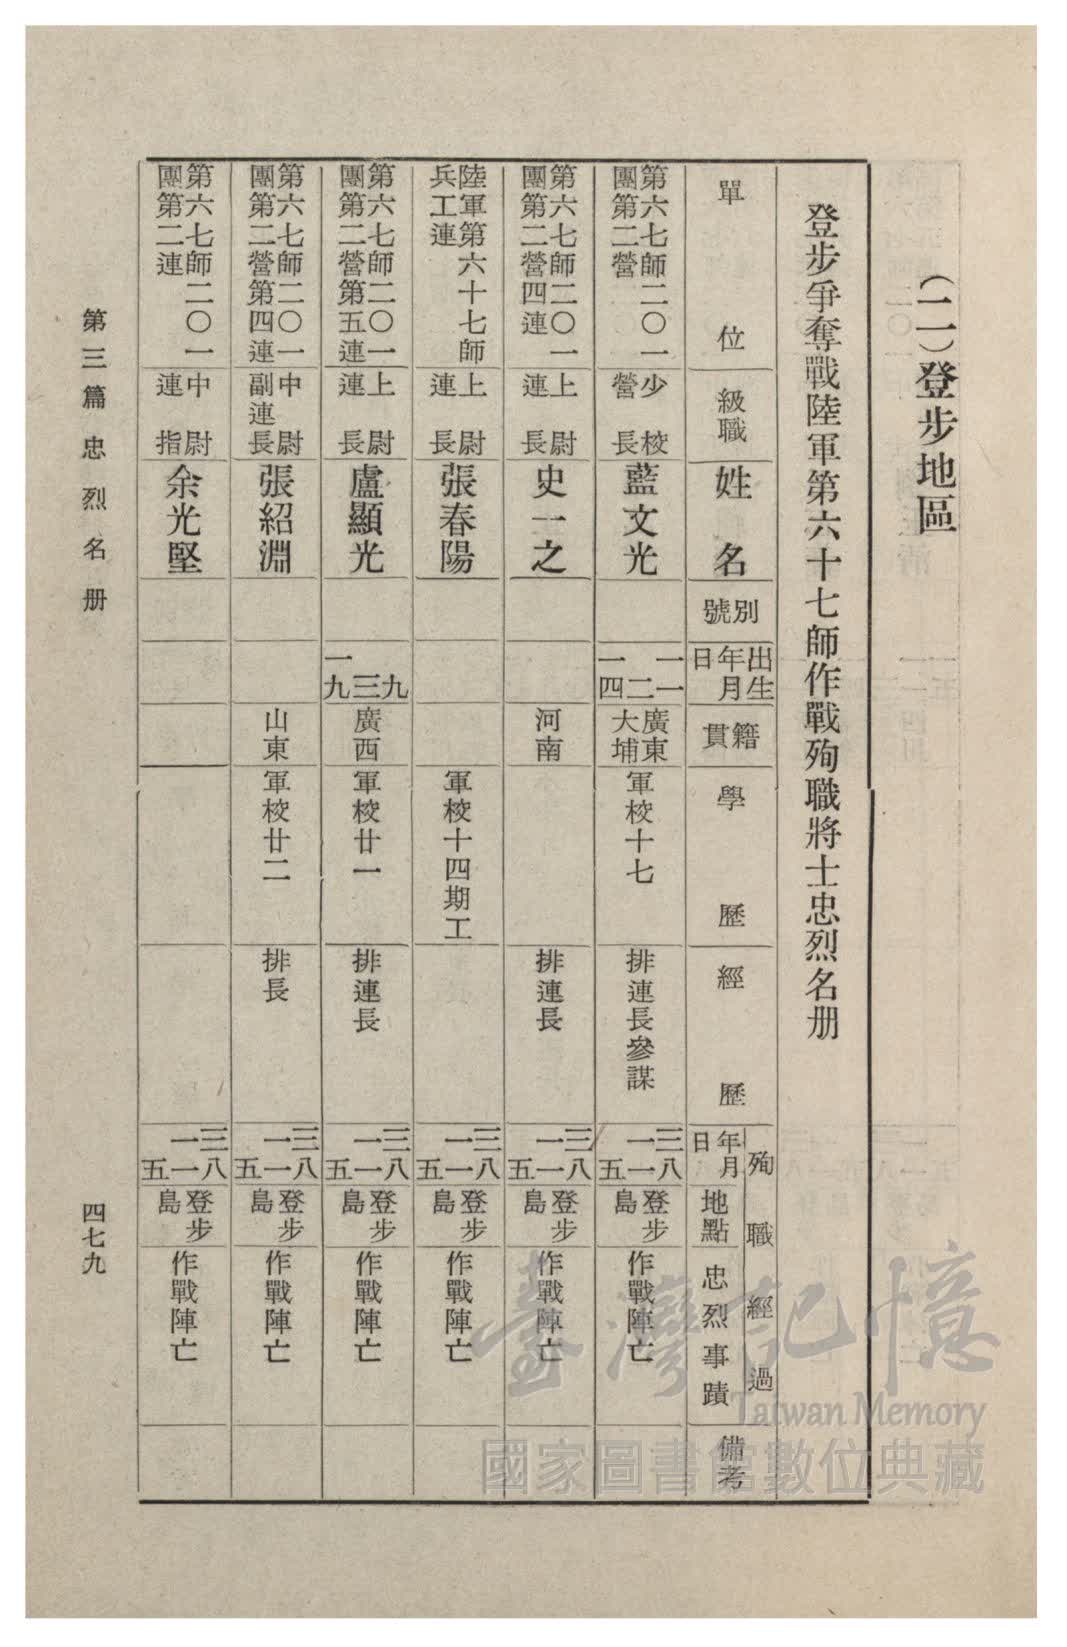 （二）登步地區
登步爭奪戰陸軍第六十七師作戰殉職將士忠烈名册
單位
級職
姓名
別號
出生年月日
籍貫
學歷
經歷
殉職經過
年月日
地點
忠烈事蹟
備考
第六七師二〇一
團第二營
少校
營長
藍文光
一一
一二
一四
廣東
大埔
軍校十七
排連長參謀
三八
一一
五
登步
島
作戰陣亡
第六七師二〇一
團第二營四連
上尉
連長
史一之
河南
排連長
三八
一一
五
登步
島
作戰陣亡
陸軍第六十七師
兵工連
上尉
連長
張春陽
軍校十四期工
三八
一一
五
登步
島
作戰陣亡
第六七師二〇一
團第二營第五連
上尉
連長
盧顯光
九
三
一九
廣西
軍校廿一
排連長
三八
一一
五
登步
島
作戰陣亡
第六七師二〇一
團第二營第四連
中尉
副連長
張紹淵
山東
軍校廿二
排長
三八
一一
五
登步
島
作戰陣亡
第六七師二〇一
團第二連
中尉
連指
余光堅
三八
一一
五
登步
島
作戰陣亡
第三篇忠烈名册
四七九
臺灣記憶
Taiwan Memory
國家圖書館數位典藏